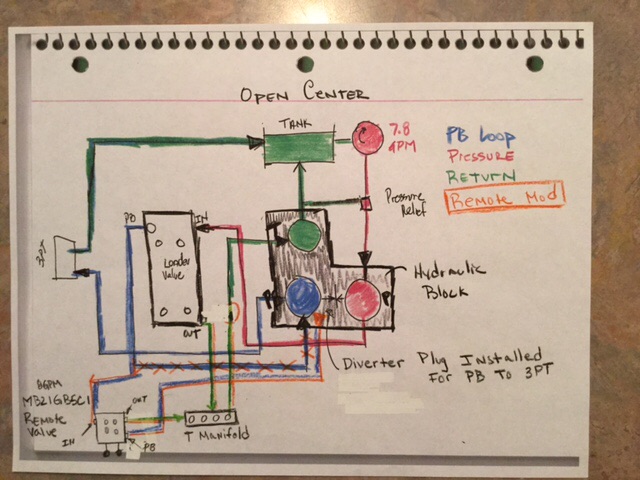 OPEN CENTER
TANK
7.8
GPM
PB Loop
Pressure
RETURN
Remote Mod
Pressure
Relief
PB
IN
Loader
Valve
OUT
3PT
Hydraulic
Block
Diverter Plug Installed
For PB To 3PT
8GPM
MB21GB5C1
Remote
Valve
OUT
IN
PB
T Manifold